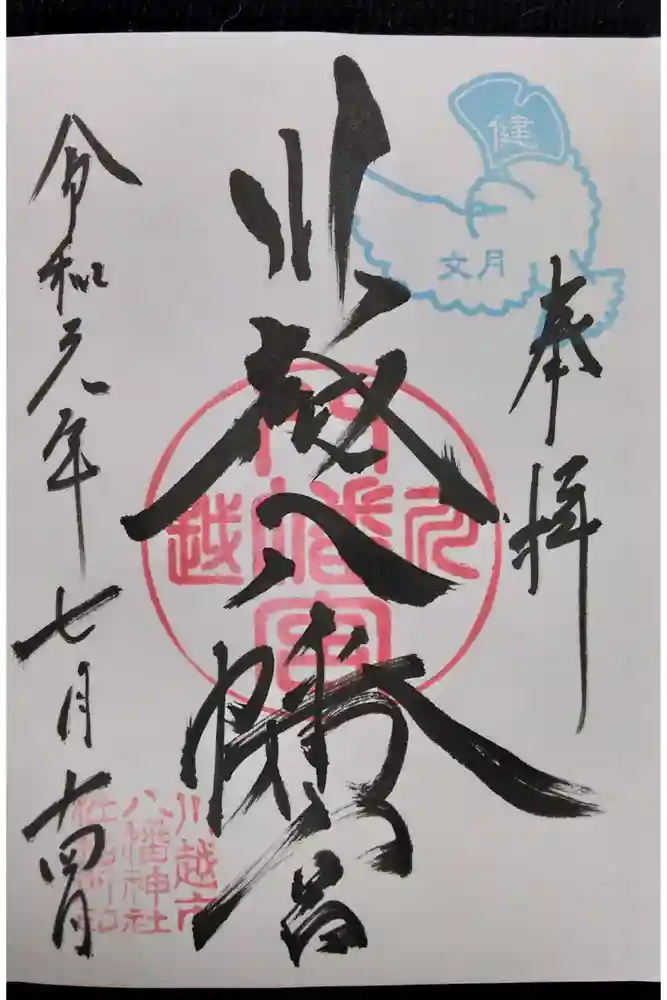 奉拝
健
文月
川越八幡宮
八
元幡越
宮
川越市
八幡神社
社務所印
令和元年七月十四日